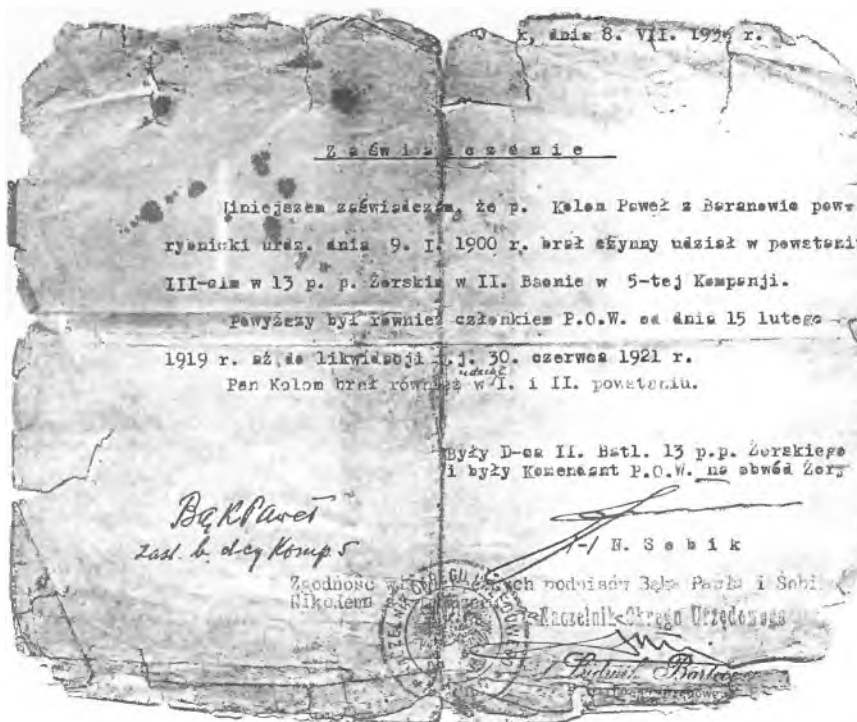 dnia 8. VII. 1936 r.
Zaświadczenie
Niniejszem zaświadczam, że p. Kolon Paweł z Baranowic pow.
rybnicki urdz. dnia 9. I. 1900 r. brał czynny udział w powstaniu
III-cim w 13 p. p. Żorskim w II. Baonie w 5-tej Kompanji.
Powyższy był również członkiem P.O.W. od dnia 15 lutego
1919 r. aż do likwidacji t.j. 30. czerwca 1921 r.
udział
Pan Kolon brał również w I. i II. powstaniu.
Były D-ca II. Batl. 13 p.p. Żorskiego
i były Komendant P.O.W. na obwód Żory
Bąk Paweł
zast. b. d-cy Komp. 5
/-/ N. Sobik
Zgodność podpisów Bąka Pawła i Sobi
Nikodema
Naczelnik Okręgu Urzędowego
Ludwik